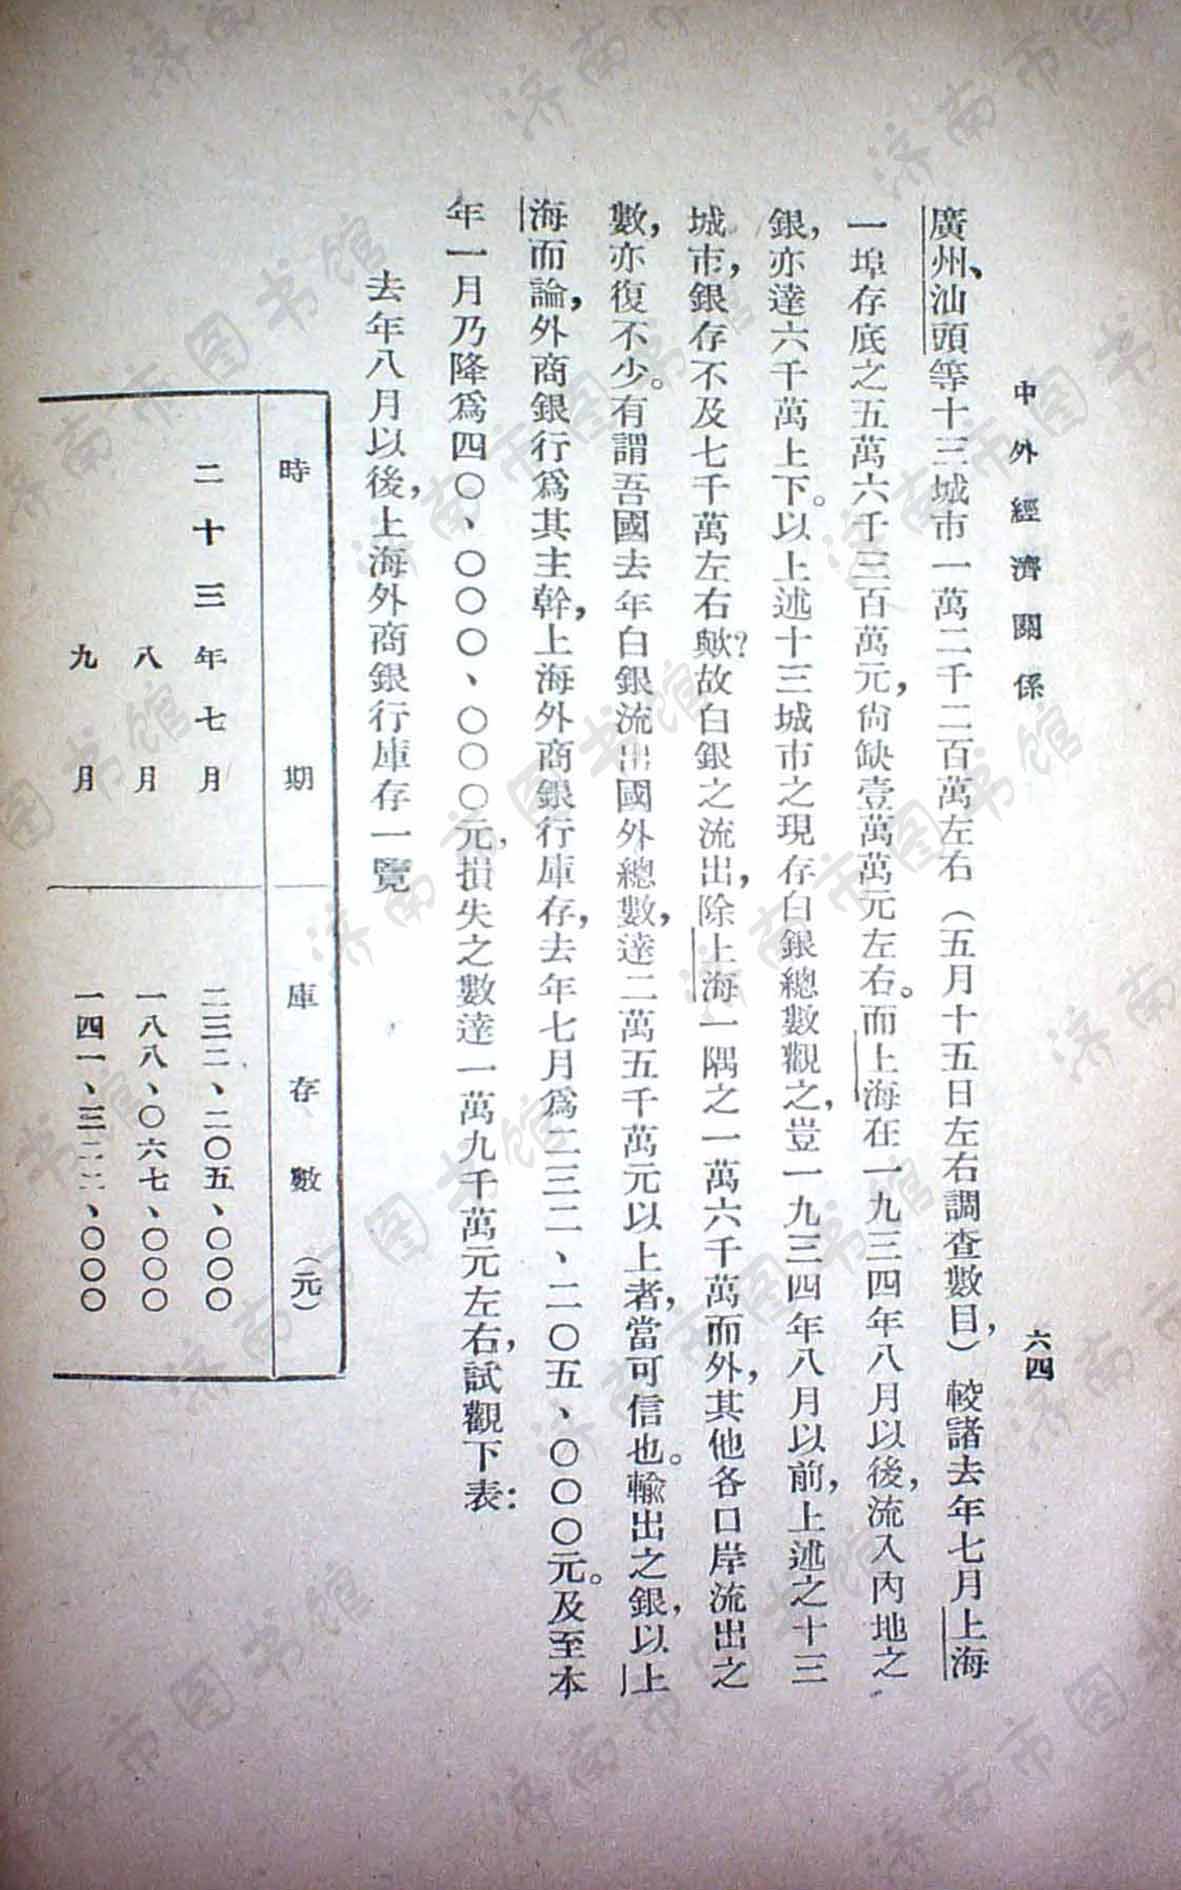 中外經濟關係
六四
廣州、汕頭等十三城市一萬二千二百萬左右（五月十五日左右調查數目，）較諸去年七月上海
一埠存底之五萬六千三百萬元，尙缺壹萬萬元左右。而上海在一九三四年八月以後，流入內地之
銀，亦達六千萬上下。以上述十三城市之現存白銀總數觀之，豈一九三四年八月以前，上述之十三
城市，銀存不及七千萬左右歟？故白銀之流出，除上海一隅之一萬六千萬而外，其他各口岸流出之
數，亦復不少。有謂吾國去年白銀流出國外總數，達二萬五千萬元以上者，當可信也。輸出之銀，以上
海而論，外商銀行爲其主幹，上海外商銀行庫存，去年七月爲二三二、二〇五、〇〇〇元。及至本
年一月乃降爲四〇、〇〇〇、〇〇〇元，損失之數達一萬九千萬元左右，試觀下表：
去年八月以後，上海外商銀行庫存一覽
時期 庫存數（元）
二十三年七月 二三二、二〇五、〇〇〇
八月 一八八、〇六七、〇〇〇
九月 一四一、三二二、〇〇〇
济南市图书馆